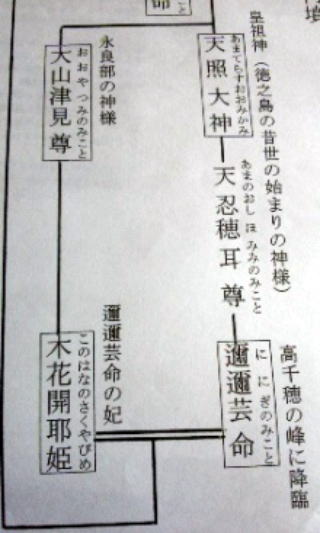 命
こと
皇祖神（徳之島の昔世の始まりの神様）
あまてらすおおみかみ
天照大神
あまのおし ほ みみのみこと
天忍穂耳尊
高千穂の峰に降臨
に にぎのみこと
邇邇芸命
永良部の神様
おおや つみのみこと
大山津見尊
邇邇芸命の妃
このはなのさくやびめ
木花開耶姫